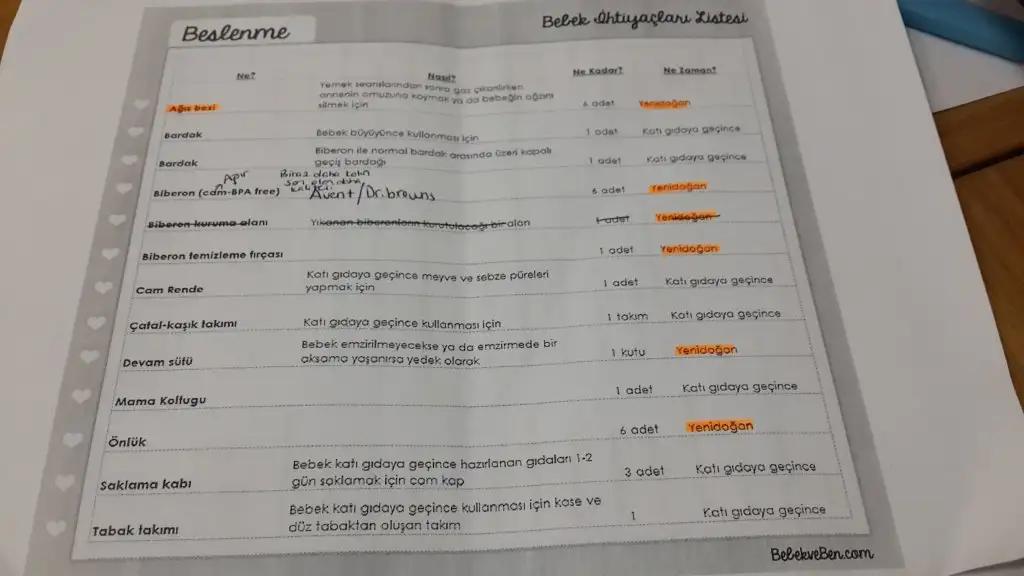 Beslenme
Bebek İhtiyaçları Listesi
Ne? Nasıl? Ne Kadar? Ne Zaman?
Yemek seanslarından sonra gaz çıkarılırken
annenin omuzuna koymak ya da bebeğin ağzını
Ağız bezi silmek için 6 adet Yenidoğan
Bardak Bebek büyüyünce kullanması için 1 adet Katı gıdaya geçince
Biberon ile normal bardak arasında üzeri kapalı
Bardak geçiş bardağı 1 adet Katı gıdaya geçince
Biraz daha kalın
Biberon (cam-BPA free) Avent/Dr.browns 6 adet Yenidoğan
Biberon kuruma alanı Yıkanan biberonların kurutulacağı bir alan 1 adet Yenidoğan
Biberon temizleme fırçası 1 adet Yenidoğan
Katı gıdaya geçince meyve ve sebze püreleri
Cam Rende yapmak için 1 adet Katı gıdaya geçince
Çatal-kaşık takımı Katı gıdaya geçince kullanması için 1 takım Katı gıdaya geçince
Bebek emzirilmeyecekse ya da emzirmede bir
Devam sütü aksama yaşanırsa yedek olarak 1 kutu Yenidoğan
Mama Koltugu 1 adet Katı gıdaya geçince
Önlük 6 adet Yenidoğan
Bebek katı gıdaya geçince hazırlanan gıdaları 1-2
Saklama kabı gün saklamak için cam kap 3 adet Katı gıdaya geçince
Bebek katı gıdaya geçince kullanması için kase ve
Tabak takımı düz tabaktan oluşan takım 1 Katı gıdaya geçince
BebekveBen.com